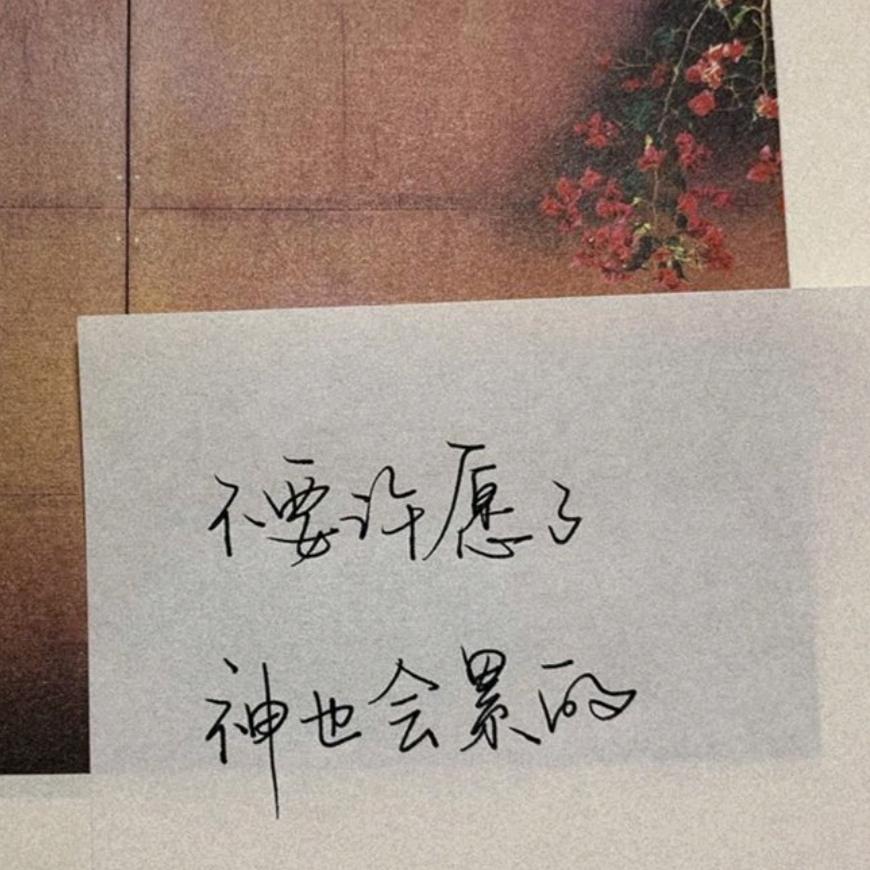 不要许愿了
神也会累的